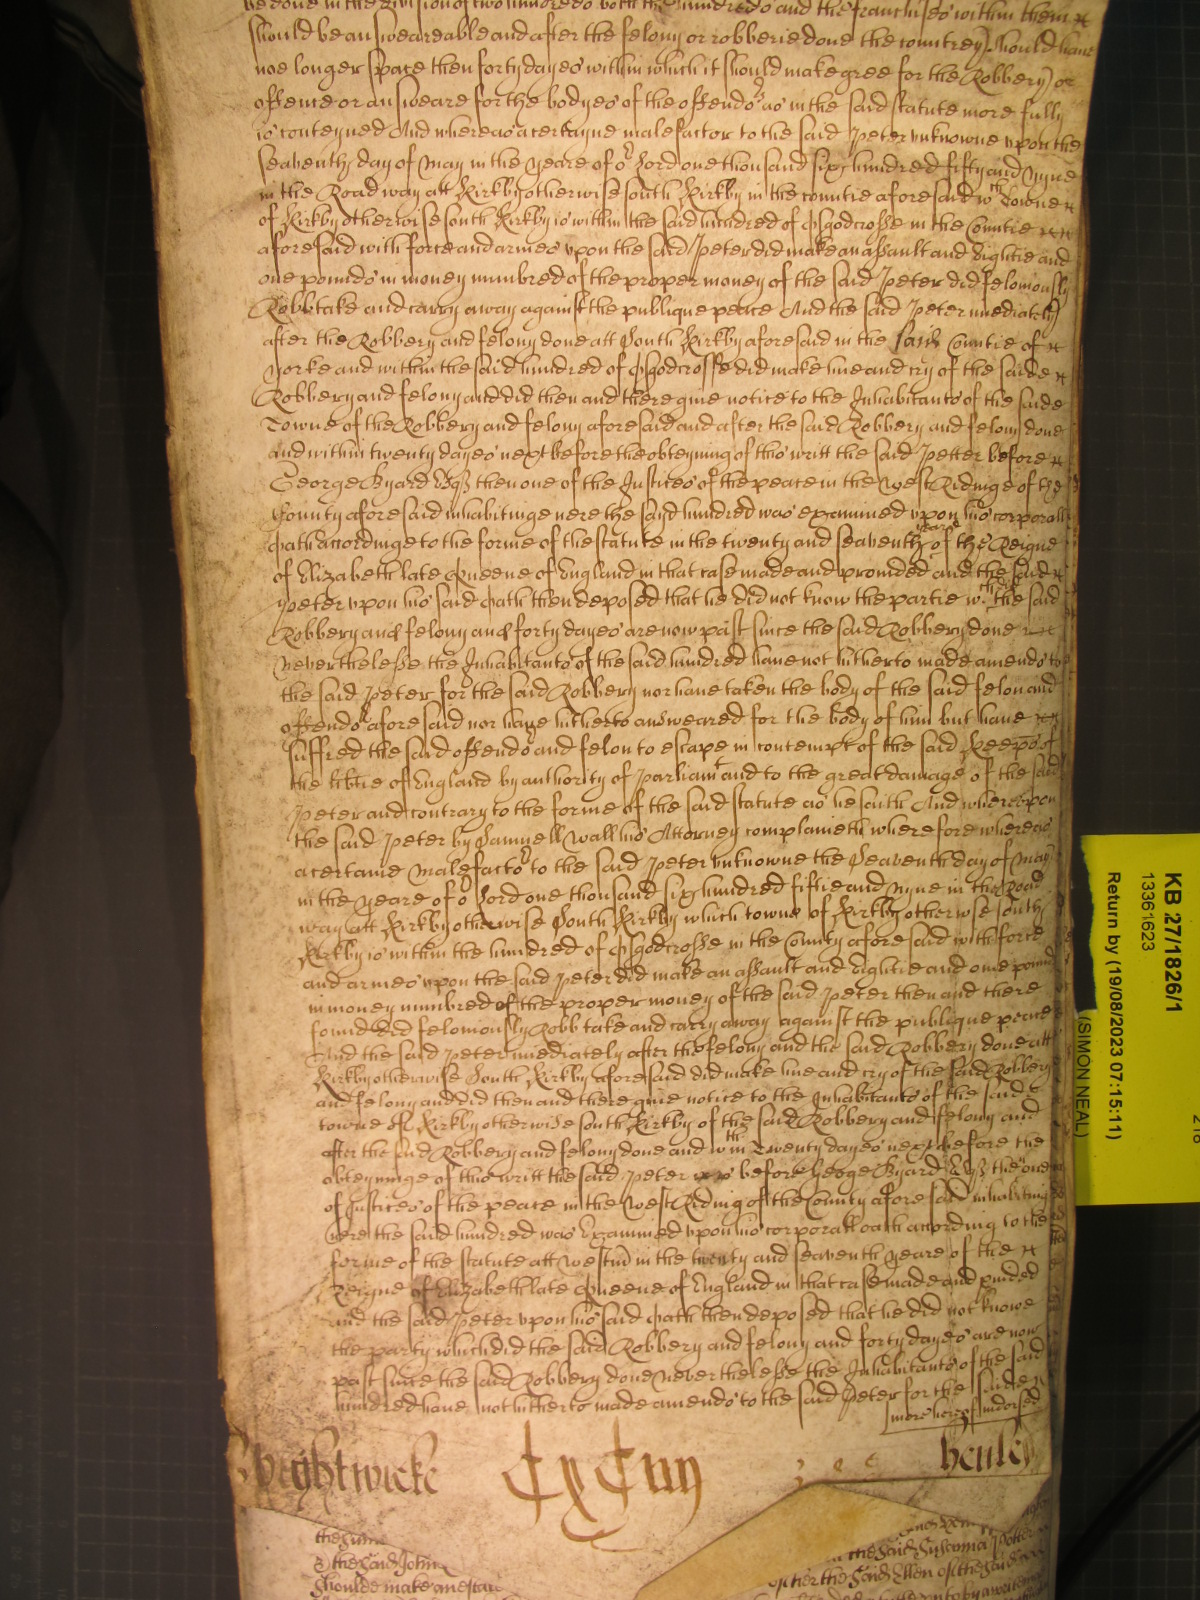 be done in the division of two hundreds both the hundreds and the franchises within them
should be answeareable and after the felony or robberie done the countrey should have
noe longer space then forty dayes within which it should make gree for the Robbery or
offence or answeare for the bodyes of the offendors as in the said statute more fully
is conteyned And whereas a certayne malefactor to the said Peter unknowne upon the
seaventh day of May in the yeare of or Lord one thousand six hundred fifty and Nyne
in the Road way att Kirkby otherwise south Kirkby in the countie aforesaid wch Towne
of Kirkby otherwise south Kirkby is within the said hundred of Osgodcrosse in the Countie
aforesaid with force and armes upon the said Peter did make an assault and Eightie and
one pounds in money numbred of the proper money of the said Peter did felonously
Robb take and carry away against the publique peace And the said Peter imediately
after the Robbery and felony done att South Kirkby aforesaid in the said Countie of
yorke and within the said hundred of Osgodcrosse did make hue and cry of the saide
Robbery and felony and did then and there give notice to the Inhabitants of the saide
Towne of the Robbery and felony aforesaid and after the said Robbery and felony done
and within twenty dayes next before the obteyning of this writt the said Petter before
George Byard Esqr then one of the Justices of the peace in the West Ridinge of the
County aforesaid inhabitinge nere the said hundred was examined upon his corporall
Oath accordinge to the forme of the statute in the twenty and seaventh yeare of the Reigne
of Elizabeth late Queene of England in that case made and provided and the said
Peter upon his said Oath then deposed that he did not know the partie wch did the said
Robbery and felony and forty dayes are now past since the said Robbery done
Neverthelesse the Inhabitants of the said hundred have not hitherto made amends to
the said Peter for the said Robbery nor have taken the body of the said felon and
offendor aforesaid nor have hitherto answeared for the body of him but have
suffred the said offendor and felon to escape in contempt of the said Keepers of
the libtie of England by authority of Parliamt and to the great damage of the said
Peter and contrary to the forme of the said statute as he saith And whereupon
the said Peter by Samuell Wall his Attorney complaineth wherefore whereas
a certaine malefactor to the said Peter unknowne the Seaventh day of May
in the yeare of or Lord one thousand six hundred fiftie and Nyne in the Road
way att Kirkby otherwise South Kirkby which towne of Kirkby otherwise south
Kirkby is within the hundred of Osgodcrosse in the County aforesaid with force
and armes upon the said Peter did make an assault and Eightie and one pound
in money numbred of the proper money of the said Peter then and there
found did felonously Robb take and carry away against the publique peace
And the said Peter imediately after the felony and the said Robbery done att
Kirkby otherwise South Kirkby aforesaid did make hue and cry of the said Robbery
and felony and did then and there give notice to the Inhabitants of the said
towne of Kirkby otherwise south Kirkby of the said Robbery and felony and
after the said Robbery and felony done and wthin Twenty dayes next before the
obteyninge of this writt the said Peter before George Byard Esqr then one
of Justices of the peace in the West Riding of the County aforesaid inhabiting
nere the said hundred was Examined upon his corporall oath according to the
forme of the statute att Westm in the twenty and seaventh yeare of the
Reigne of Elizabeth late Queene of England in that case made and pvided
and the said Peter upon his said Oath then deposed that he did not knowe
the party which did the said Robbery and felony and forty dayes are now
past since the said Robbery done Neverthelesse the Inhabitants of the said
hundred have not hitherto made amends to the said Peter for the saide
more hereof indorsed
Wightwicke
henley
the summe
the said John
should make
the said Susanna
the said Ellen of the said
KB 27/1826/1
13361623
Return by (19/08/2023 07:15:11)
(SIMON NEAL)